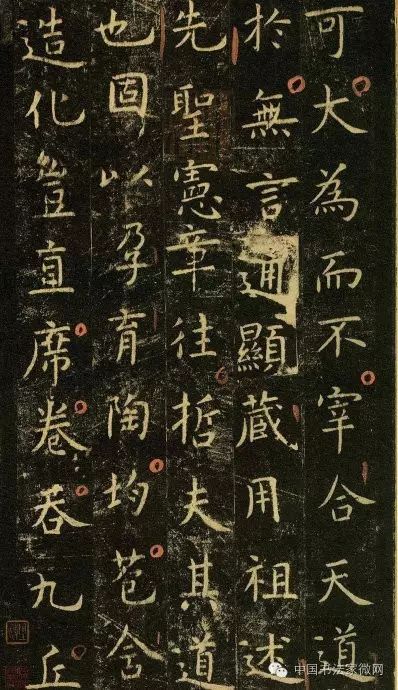 可大為而不宰合天道
於無言通顯藏用祖述
先聖憲章往哲夫其道
也固以孕育陶均苞含
造化豈直席卷吞九丘
中国书法家微网